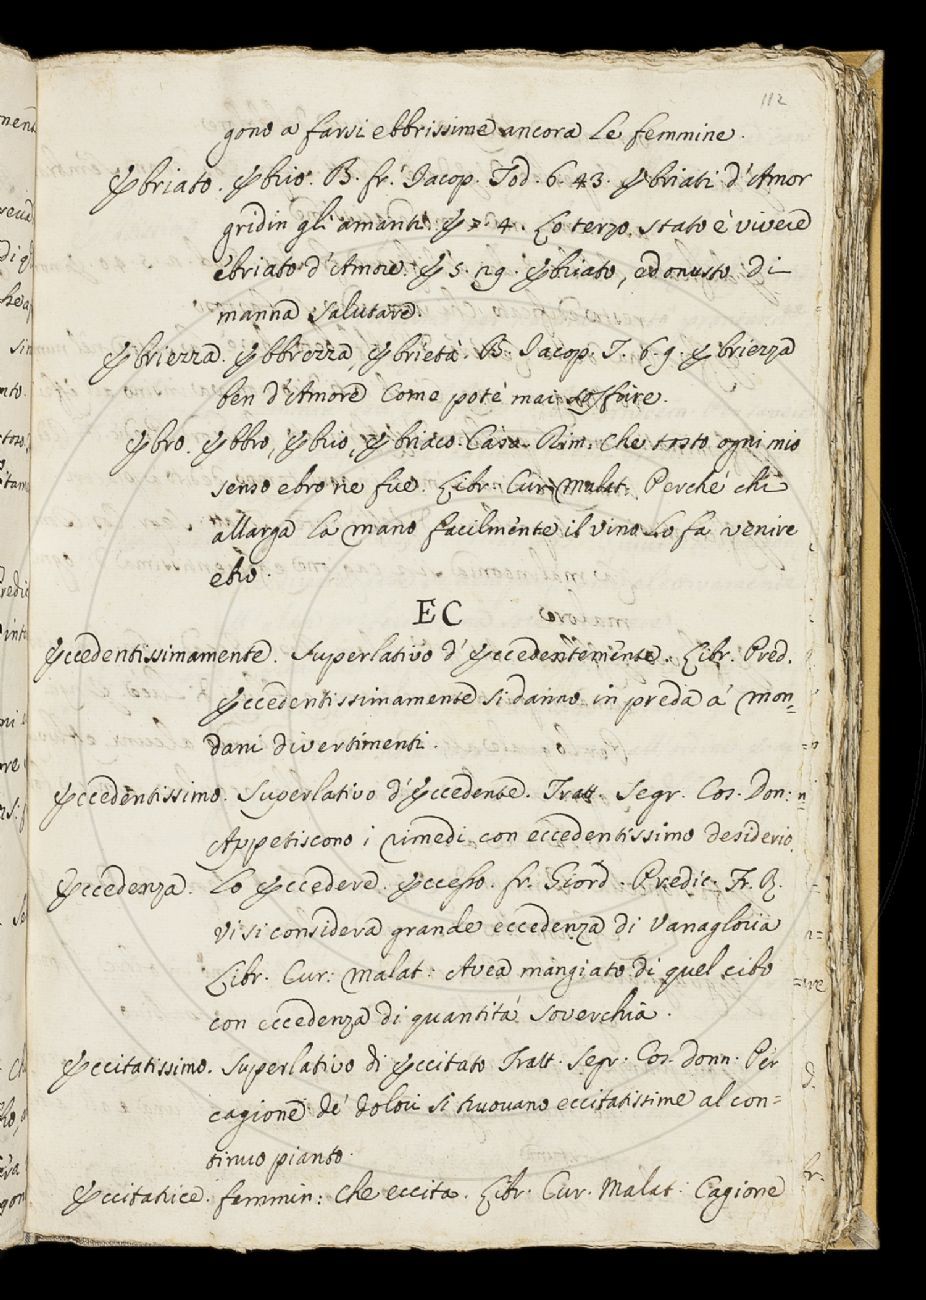 112
gono a farsi ebbrissime ancora le femmine.
Ebriato. Ebrio. B. fr. Jacop. Tod. 6. 43. Ebriati d'Amor
gridin gli amanti. E 7. 4. Lo terzo stato è vivere
ebriato d'Amore. E 5. 29. Ebriato, ed onusto di
manna salutare.
Ebriezza. Ebbrezza, Ebrietà. B. Jacop. T. 6. 9. Ebriezza
ben d'Amore come potè mai soffrire.
Ebro. Ebbro, Ebrio, Ebriaco. Casa. Rim. Che tosto ogni mio
senso ebro ne fue. Libr. Cur. Malat. Perchè chi
allarga la mano facilmente il vino lo fa venire
ebro.
EC
Eccedentissimamente. Superlativo d'Eccedentemente. Libr. Pred.
Eccedentissimamente si danno in preda a' mon=
dani divertimenti.
Eccedentissimo. Superlativo d'Eccedente. Tratt. Segr. Cos. Don:
Appetiscono i rimedi con eccedentissimo desiderio.
Eccedenza. Lo Eccedere. Eccesso. fr. Giord. Predic. Fr. R.
Vi si considera grande eccedenza di Vanagloria
Libr. Cur: Malat: Avea mangiato di quel cibo
con eccedenza di quantità soverchia.
Eccitatissimo. Superlativo di Eccitato Tratt. Segr. Cos. donn. Per
cagione de' dolori si truovano eccitatissime al con=
tinuo pianto.
Eccitatrice. femmin: Che eccita. Libr. Cur. Malat. Cagione